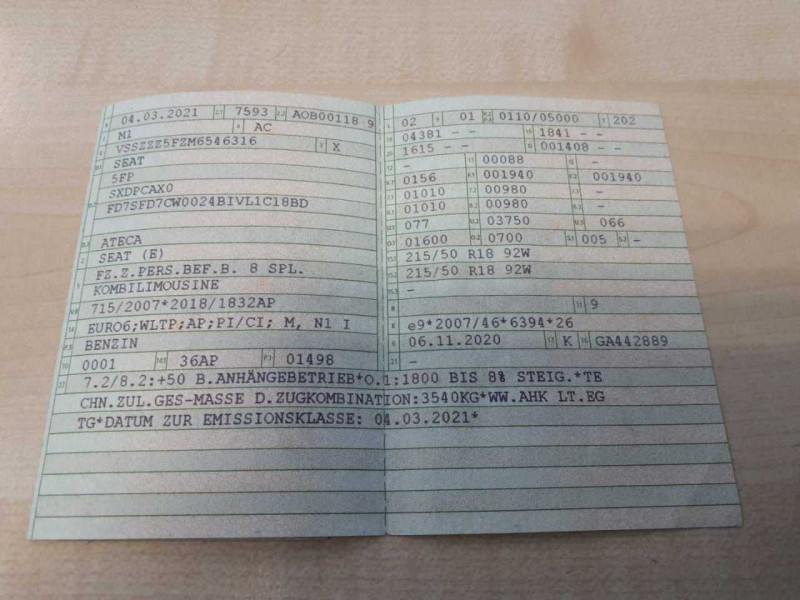 04.03.2021 7593 AOB00118 9
M1 AC
VSSZZZ5FZM6546316 X
SEAT
5FP
SXDPCAX0
FD7SFD7CW0024BIVL1C18BD
ATECA
SEAT (E)
FZ.Z.PERS.BEF.B. 8 SPL.
KOMBILIMOUSINE
715/2007*2018/1832AP
EURO6;WLTP;AP;PI/CI; M, N1 I
BENZIN
0001 36AP 01498
02 01 0110/05000 202
04381 - - 1841 - -
1615 - - 001408 - -
- 00088 -
0156 001940 001940
01010 00980 -
01010 00980 -
077 03750 066
01600 0700 005 -
215/50 R18 92W
215/50 R18 92W
-
9
e9*2007/46*6394*26
06.11.2020 K GA442889
-
7.2/8.2:+50 B.ANHÄNGEBETRIEB*O.1:1800 BIS 8% STEIG.*TE
CHN.ZUL.GES-MASSE D.ZUGKOMBINATION:3540KG*WW.AHK LT.EG
TG*DATUM ZUR EMISSIONSKLASSE: 04.03.2021*